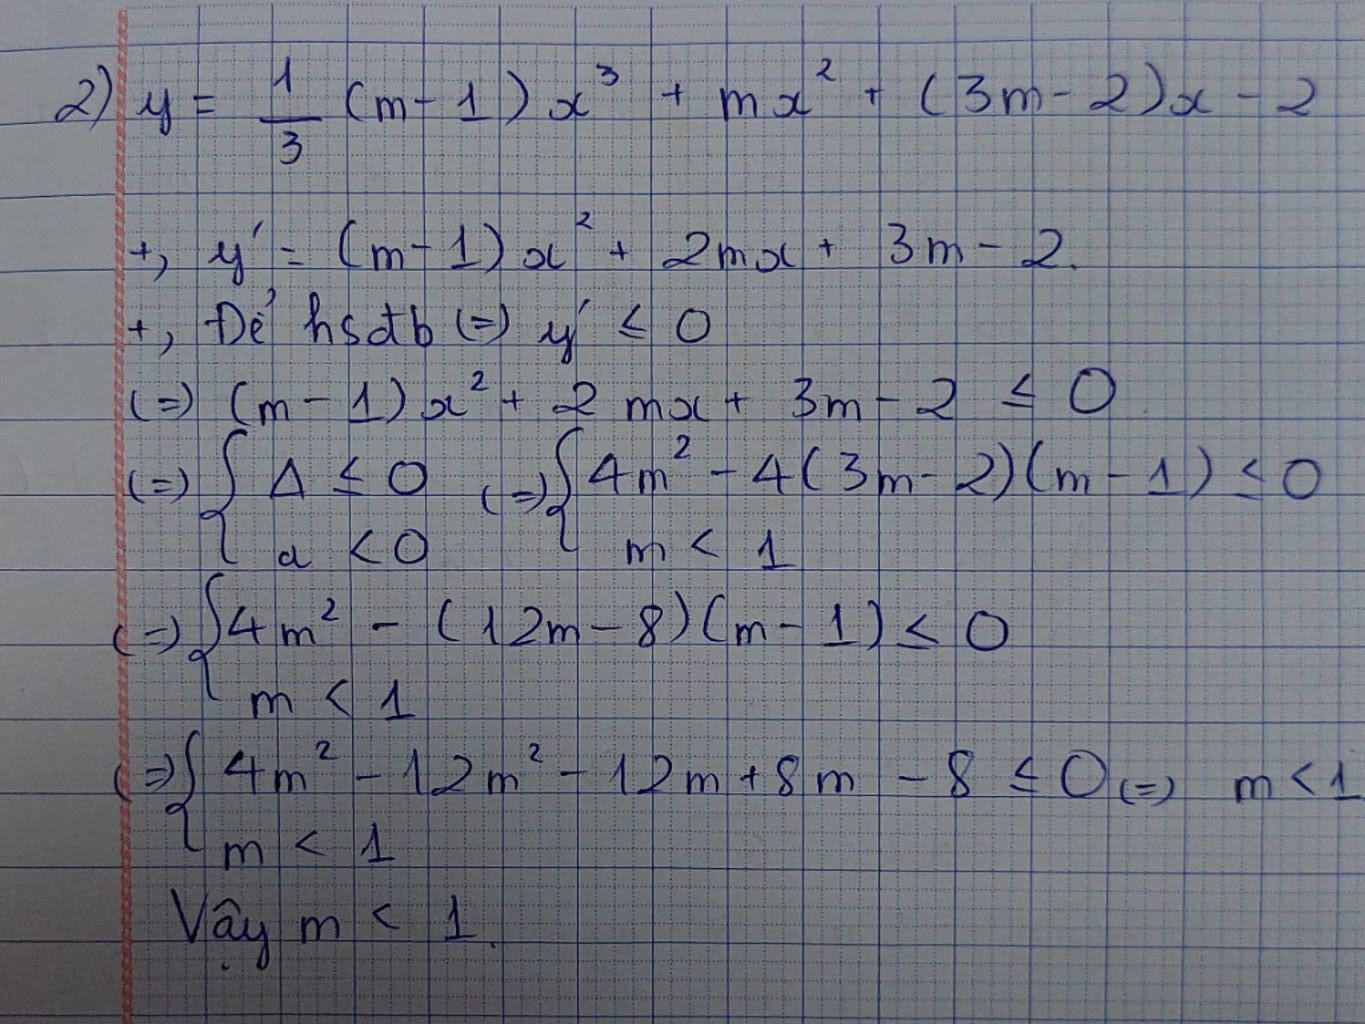 2) y = 1/3 (m-1)x³ + mx² + (3m-2)x - 2
+, y' = (m-1)x² + 2mx + 3m - 2.
+, Để hsđb (=) y' ≤ 0
(=) (m-1)x² + 2mx + 3m - 2 ≤ 0
(=) { Δ ≤ 0 (=) { 4m² - 4(3m-2)(m-1) ≤ 0
a < 0 m < 1
(=) { 4m² - (12m-8)(m-1) ≤ 0
m < 1
(=) { 4m² - 12m² - 12m + 8m - 8 ≤ 0 (=) m < 1
m < 1
Vậy m < 1.